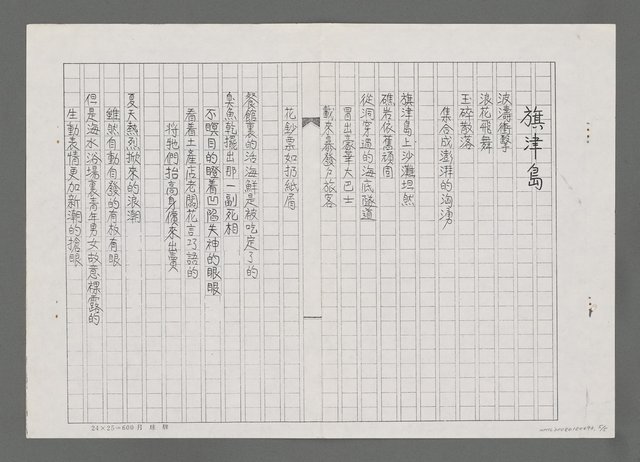 旗津島
波濤衝擊
浪花飛舞
玉碎散落
集合成澎湃的洶湧
旗津島上沙灘坦然
礁岩依舊頑固
從洞穿過的海底隧道
冒出豪華大巴士
載來暴發戶旅客
花鈔票如扔紙屑
餐館裏的活海鮮是被吃定了的
臭魚乾擺出那一副死相
不瞑目的瞪着凹陷失神的眼眼
看着土產店老闆花言巧語的
將牠們抬高身價來出賣
夏天熱烈掀來的浪潮
雖然自動自發的有板有眼
但是海水浴場裏青年男女故意裸露的
生動表情更加新潮的搶眼
24×25=600